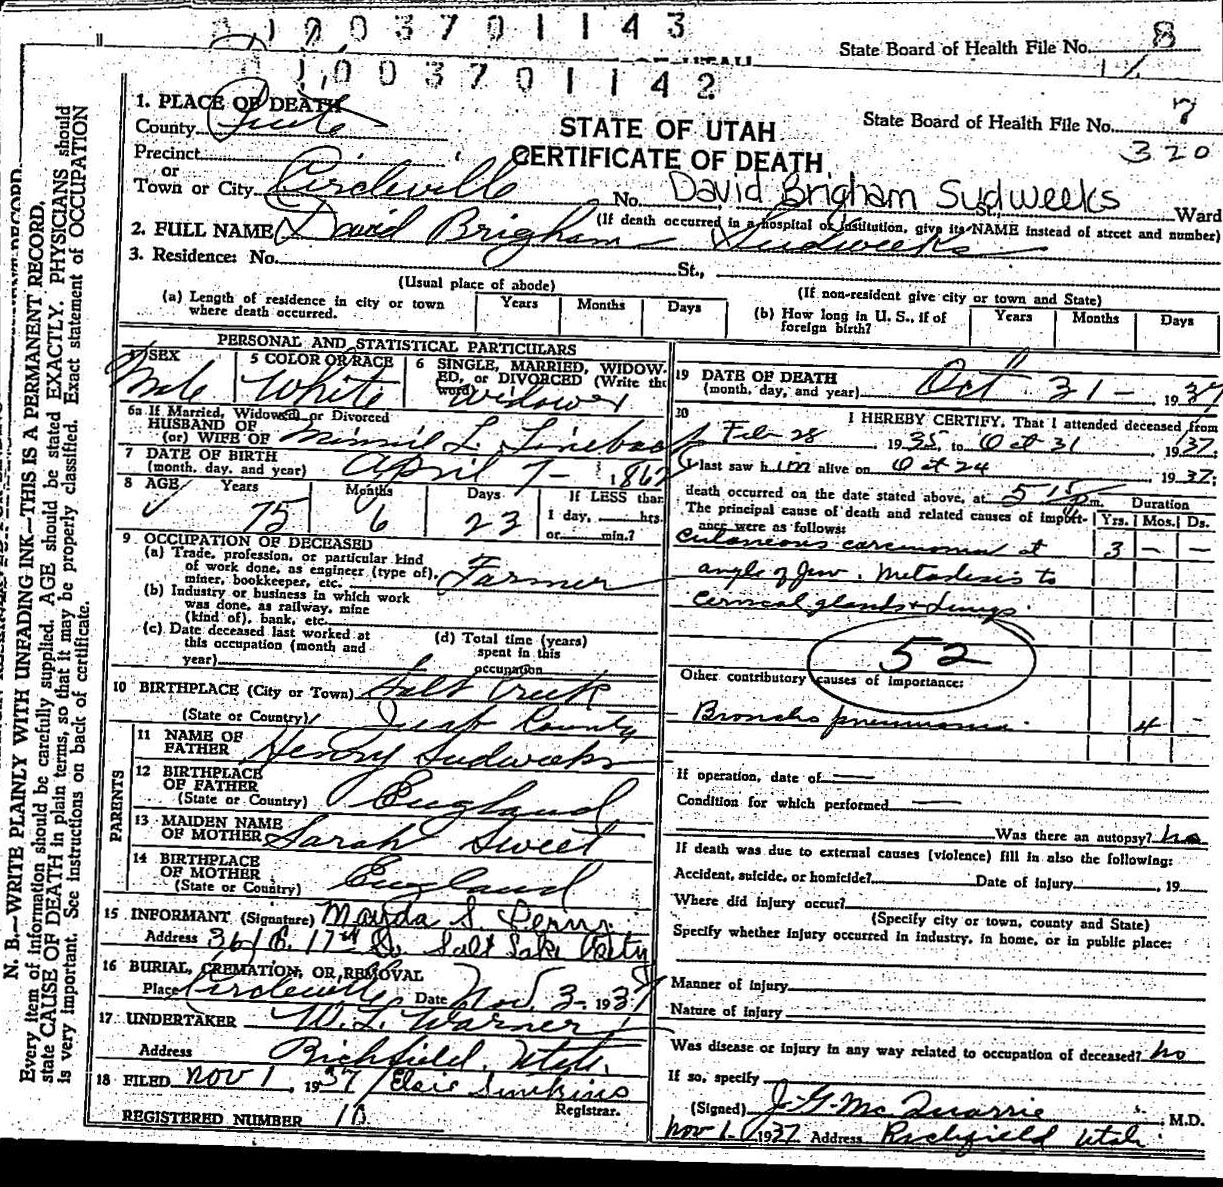 1003701143
State Board of Health File No. 8
1003701142
1. PLACE OF DEATH
County Piute
STATE OF UTAH
State Board of Health File No. 7
320
Precinct
CERTIFICATE OF DEATH
or
Town or City Circleville No. David Brigham Sudweeks St., Ward
(If death occurred in a hospital or institution, give its NAME instead of street and number)
2. FULL NAME David Brigham Sudweeks
3. Residence: No. St.,
(Usual place of abode) (If non-resident give city or town and State)
(a) Length of residence in city or town where death occurred. Years Months Days
(b) How long in U. S., if of foreign birth? Years Months Days
PERSONAL AND STATISTICAL PARTICULARS
4 SEX Male
5 COLOR OR RACE White
6 SINGLE, MARRIED, WIDOWED, or DIVORCED (Write the word) Widower
6a If Married, Widowed or Divorced
HUSBAND OF
(or) WIFE OF Minnie L. Lineback
7 DATE OF BIRTH
(month, day, and year) April 7- 1862
8 AGE Years Months Days If LESS than
75 6 23 1 day, hrs.
or min.?
9 OCCUPATION OF DECEASED
(a) Trade, profession, or particular kind
of work done, as engineer (type of), Farmer
miner, bookkeeper, etc.
(b) Industry or business in which work
was done, as railway, mine
(kind of), bank, etc.
(c) Date deceased last worked at
this occupation (month and
year)
(d) Total time (years)
spent in this
occupation
10 BIRTHPLACE (City or Town) Salt Creek
(State or Country) Juab County
PARENTS
11 NAME OF
FATHER Henry Sudweeks
12 BIRTHPLACE
OF FATHER
(State or Country) England
13 MAIDEN NAME
OF MOTHER Sarah Sweet
14 BIRTHPLACE
OF MOTHER
(State or Country) England
15 INFORMANT (Signature) Mayda S.
Address 17th So. Salt Lake City
16 BURIAL, CREMATION, OR REMOVAL
Place Circleville Date Nov. 3- 1937
17 UNDERTAKER W. L. Warner
Address Richfield, Utah.
18 FILED Nov 1, 1937 Elsie Simkins
Registrar.
REGISTERED NUMBER 10
19 DATE OF DEATH
(month, day, and year) Oct 31- 1937
20 I HEREBY CERTIFY, That I attended deceased from
Feb 28 1935, to Oct 31 1937;
I last saw him alive on Oct 24 1937;
death occurred on the date stated above, at 5 15 p.m. Duration
The principal cause of death and related causes of import- Yrs. Mos. Ds.
ance were as follows:
Cutaneous carcinoma at 3 — —
angle of Jaw. Metastesis to
cervical glands + Lungs.
52
Other contributory causes of importance:
Broncho pneumonia. 4 -
If operation, date of —
Condition for which performed —
Was there an autopsy? no
If death was due to external causes (violence) fill in also the following:
Accident, suicide, or homicide? Date of injury , 19
Where did injury occur?
(Specify city or town, county and State)
Specify whether injury occurred in industry, in home, or in public place:
Manner of injury
Nature of Injury
Was disease or injury in any way related to occupation of deceased? no
If so, specify
(Signed) J. G. McQuarrie M.D.
Nov 1- 1937 Address Richfield Utah.
N. B.—WRITE PLAINLY WITH UNFADING INK—THIS IS A PERMANENT RECORD.
Every item of information should be carefully supplied. AGE should be stated EXACTLY. PHYSICIANS should
state CAUSE OF DEATH in plain terms, so that it may be properly classified. Exact statement of OCCUPATION
is very important. See instructions on back of certificate.